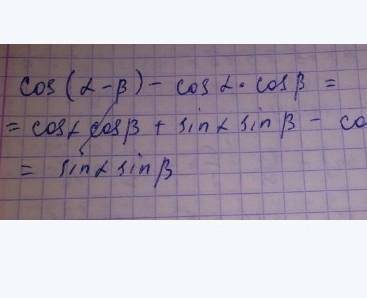 cos(α-β) - cosα·cosβ =
= cosα cosβ + sinα sinβ - co
= sinα sinβ